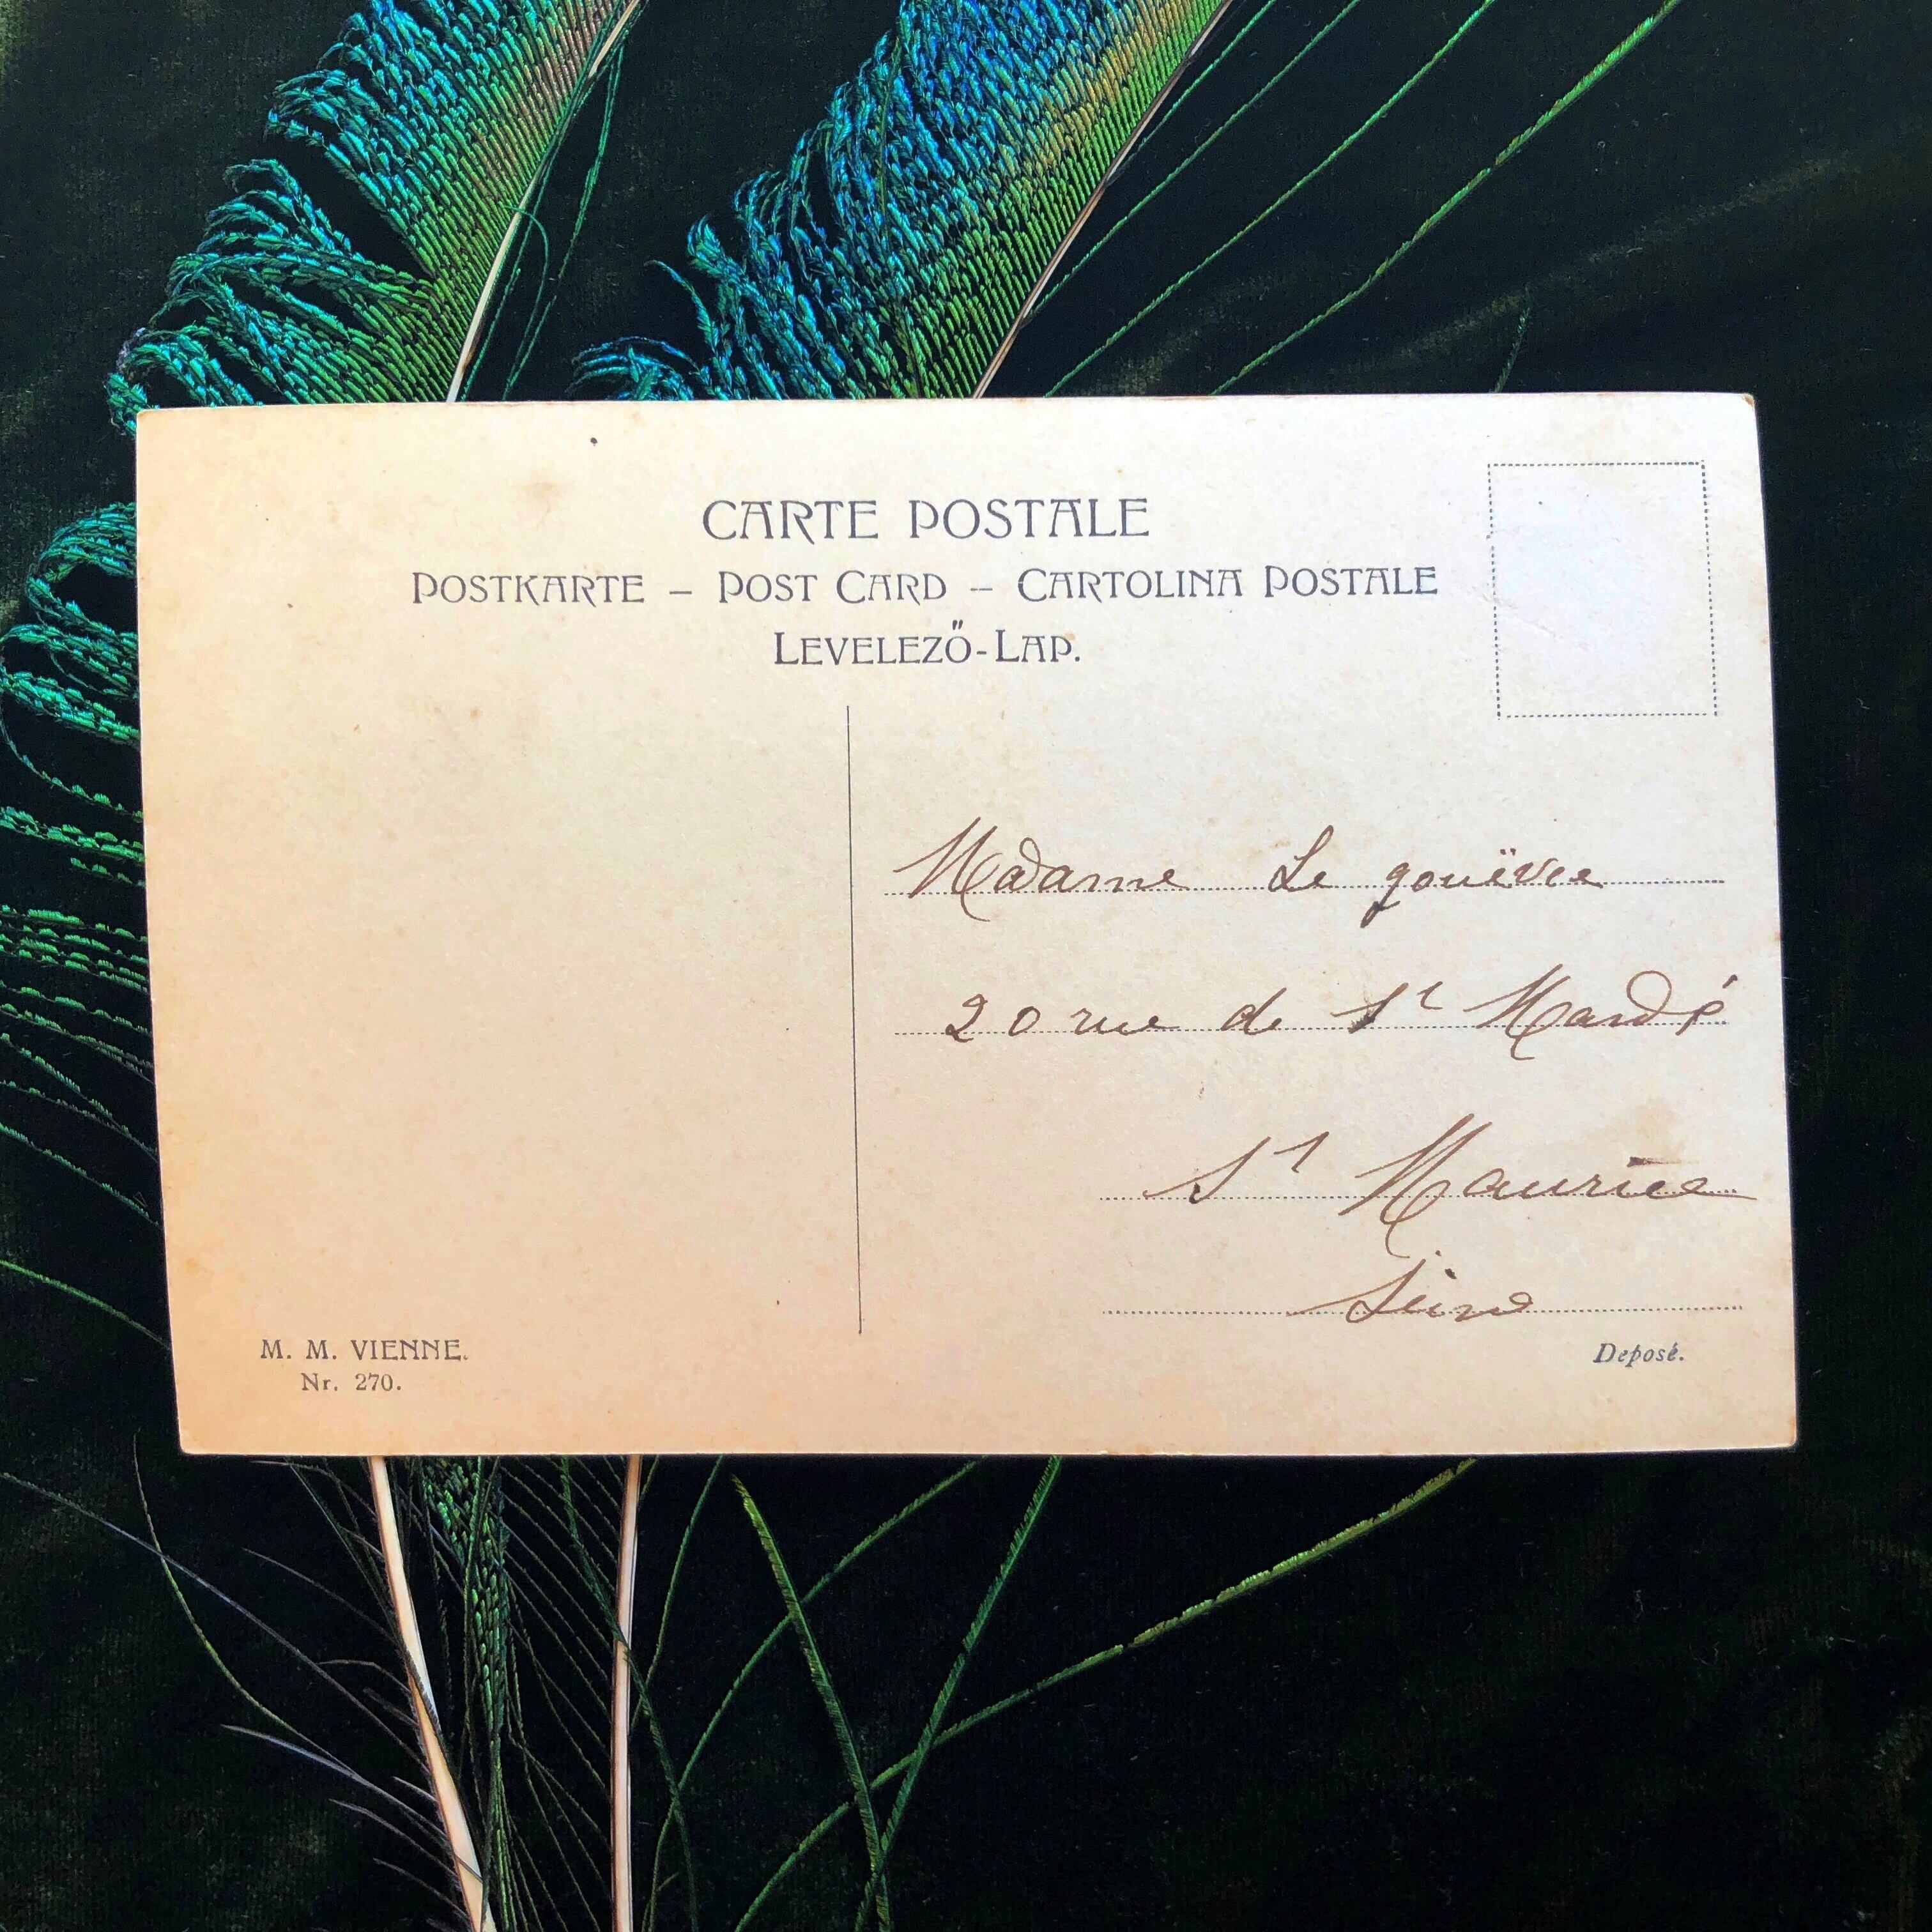 CARTE POSTALE
POSTKARTE – POST CARD – CARTOLINA POSTALE
LEVELEZŐ-LAP.
Madame Le gouëvee
20 rue de St Mandé
St Maurice
Seine
M. M. VIENNE.
Nr. 270.
Deposé.